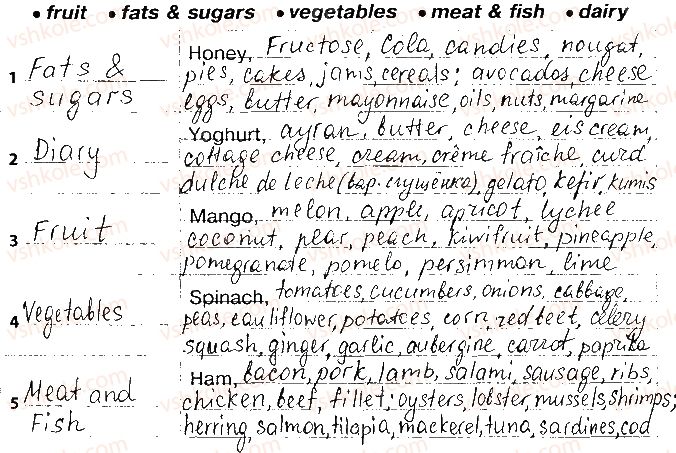 • fruit • fats & sugars • vegetables • meat & fish • dairy
1 Fats & sugars
Honey, Fructose, Cola, candies, nougat,
pies, cakes, jams, cereals; avocados, cheese
eggs, butter, mayonnaise, oils, nuts, margarine
2 Diary
Yoghurt, ayran, butter, cheese, eis cream,
cottage cheese, cream, crème fraîche, curd
dulche de leche (вар. сгущёнка), gelato, kefir, kumis
3 Fruit
Mango, melon, apple, apricot, lychee
coconut, pear, peach, kiwifruit, pineapple,
pomegranate, pomelo, persimman, lime
4 Vegetables
Spinach, tomatoes, cucumbers, onions, cabbage,
peas, cauliflower, potatoes, corn, red beet, celery
squash, ginger, garlic, aubergine, carrot, paprika
5 Meat and Fish
Ham, bacon, pork, lamb, salami, sausage, ribs,
chicken, beef, fillet; oysters, lobster, mussels, shrimps;
herring, salmon, tilapia, mackerel, tuna, sardines, cod